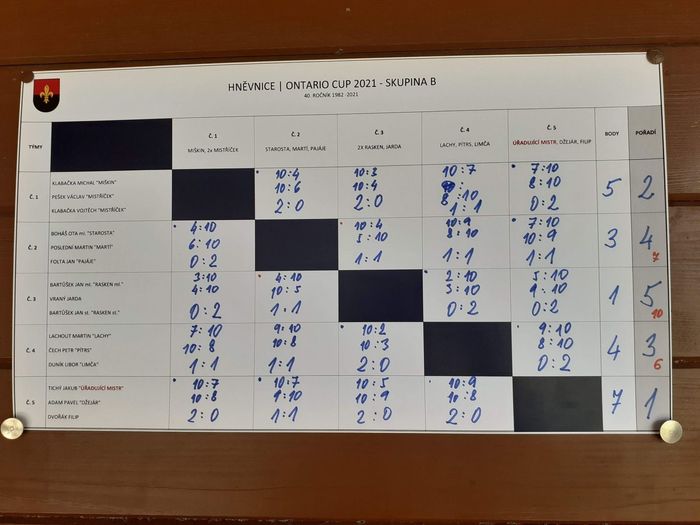 HNĚVNICE | ONTARIO CUP 2021 - SKUPINA B
40. ROČNÍK 1982 -2021
TÝMY Č. 1 Č. 2 Č. 3 Č. 4 Č. 5 BODY POŘADÍ
MIŠKIN, 2x MISTŘÍČEK STAROSTA, MARTÍ, PAJÁJE 2X RASKEN, JARDA LACHY, PÍTRS, LIMČA ÚŘADUJÍCÍ MISTR, DŽEJAR, FILIP
KLABAČKA MICHAL "MIŠKIN" 10:4 10:3 10:7 7:10
Č. 1 PEŠEK VÁCLAV "MISTŘÍČEK" 10:6 10:4 8:10 8:10 5 2
KLABAČKA VOJTĚCH "MISTŘÍČEK" 2:0 2:0 1:1 0:2
BOHÁŠ OTA ml. "STAROSTA" 4:10 10:4 10:9 7:10
Č. 2 POSLEDNÍ MARTIN "MARTÍ" 6:10 5:10 8:10 10:9 3 4
FOLTA JAN "PAJÁJE" 0:2 1:1 1:1 1:1 7
BARTŮŠEK JAN ml. "RASKEN ml." 3:10 4:10 2:10 5:10
Č. 3 VRANÝ JARDA 4:10 10:5 3:10 9:10 1 5
BARTŮŠEK JAN st. "RASKEN st." 0:2 1:1 0:2 0:2 10
LACHOUT MARTIN "LACHY" 7:10 9:10 10:2 9:10
Č. 4 ČECH PETR "PÍTRS" 10:8 10:8 10:3 8:10 4 3
DUNÍK LIBOR "LIMČA" 1:1 1:1 2:0 0:2 6
TICHÝ JAKUB "ÚŘADUJÍCÍ MISTR" 10:7 10:7 10:5 10:9
Č. 5 ADAM PAVEL "DŽEJÁR" 10:8 9:10 10:9 10:8 7 1
DVOŘÁK FILIP 2:0 1:1 2:0 2:0